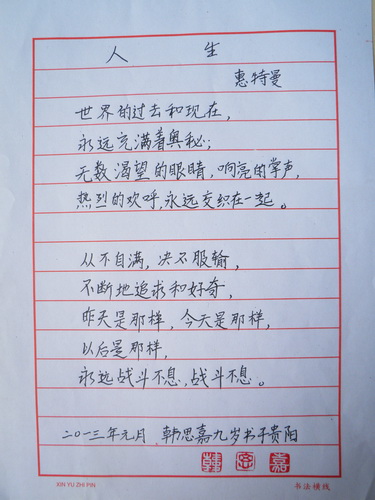 人 生
惠特曼
世界的过去和现在，
永远充满着奥秘；
无数渴望的眼睛，响亮的掌声，
热烈的欢呼，永远交织在一起。
从不自满，决不服输，
不断地追求和好奇，
昨天是那样，今天是那样，
以后是那样，
永远战斗不息，战斗不息。
二〇一三年元月，韩思嘉九岁书于贵阳
韩 思 嘉
XIN YU ZHI PIN 书法横线